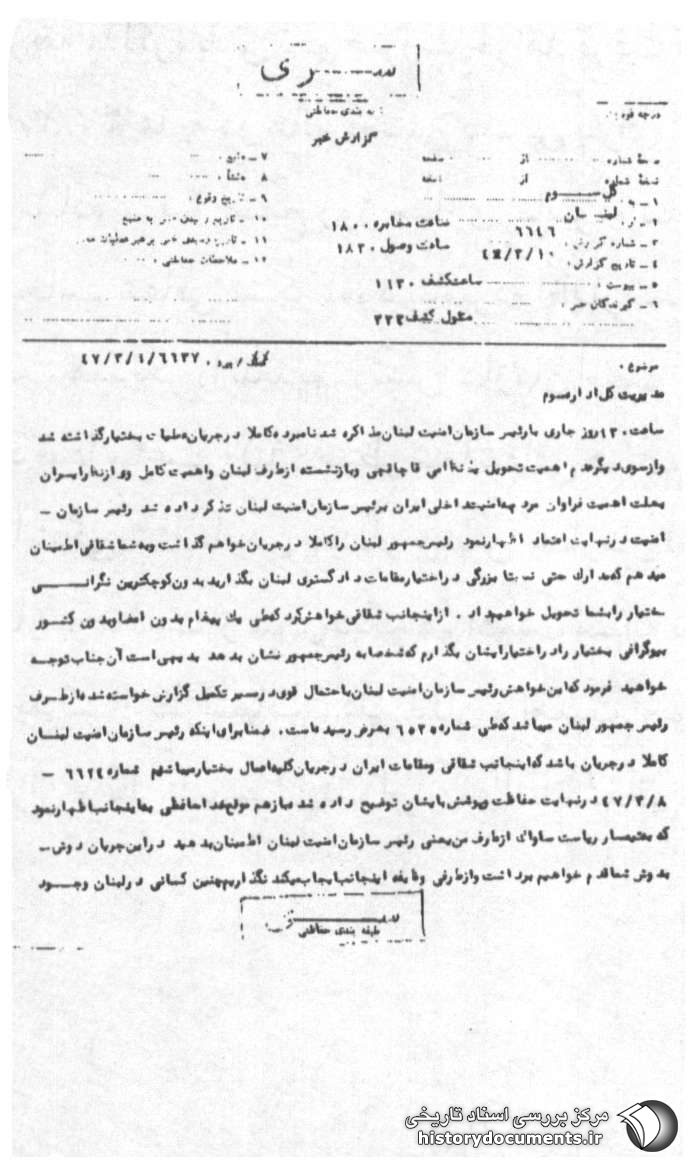 سری
طبقه بندی حفاظتی
گزارش خبر
درجه فوریت
صفحه شماره از صفحه
نسخه شماره از نسخه
۱ ـ به کل سوم
۲ ـ از لبنان
۳ ـ شماره گزارش ۶۶۴۶
۴ ـ تاریخ گزارش ۴۷/۳/۱۰
۵ ـ پیوست
۶ ـ گیرندگان خبر
ساعت مخابره ۱۸۰۰
ساعت وصول ۱۸۳۰
ساعت کشف
مسئول کشف ۳۳۲
۷ ـ منبع
۸ ـ منشأ
۹ ـ تاریخ وقوع
۱۰ ـ تاریخ رسیدن خبر به منبع
۱۱ ـ تاریخ رسیدن خبر به رهبر عملیات
۱۲ ـ ملاحظات حفاظتی
موضوع
مدیریت کل اداره سوم
ساعت روز جاری با رئیس سازمان امنیت لبنان مذاکره شد نامبرده کاملا در جریان عملیات بختیار گذاشته شد
و از سوی دیگر عدم اهمیت تحویل یک نظامی قاچاقچی و بازنشسته از طرف لبنان و اهمیت کامل وی از نظر ایران
بعلت اهمیت فراوان مرد به امنیت داخلی ایران برئیس سازمان امنیت لبنان تذکر داده شد رئیس سازمان ـ
امنیت در نهایت اعتماد اظهار نمود رئیس جمهور لبنان را کاملا در جریان خواهم گذاشت و به شما شفاهی اطمینان
میدهم که مدارک حتی نسبتا بزرگی در اختیار مقامات دادگستری لبنان بگذارید بدون کوچکترین نگرانی
بختیار را بشما تحویل خواهیم داد . از اینجانب شفاهی خواهش کرد که طی یک پیغام بدون امضا و بدون کشور
بیوگرافی بختیار را در اختیار ایشان بگذارم که شخصا به رئیس جمهور نشان بدهد بدیهی است آن جناب توجه
خواهید فرمود که این خواهش رئیس سازمان امنیت لبنان با احتمال قوی در مسیر تکمیل گزارش خواسته شده از طرف
رئیس جمهور لبنان میباشد که طی شماره ۶۵۲۵ بعرض رسیده است. ضمنا برای اینکه رئیس سازمان امنیت لبنان
کاملا در جریان باشد که اینجانب شفاهی و مقامات ایران در جریان کلیه اعمال بختیار میباشیم شماره ۶۶۲۴ ـ
۴۷/۳/۸ در نهایت حفاظت و پوشش بایشان توضیح داده شد و باز هم موقع خداحافظی به اینجانب اظهار نمود
که به تیمسار ریاست ساواک از طرف من یعنی رئیس سازمان امنیت لبنان اطمینان بدهید در این جریان دوش ـ
بدوش شما قدم خواهیم برداشت و از طرفی وظیفه اینجانب ایجاب میکند نگذاریم چنین کسانی در لبنان وجود
سری
طبقه بندی حفاظتی
مرکز بررسی اسناد تاریخی
historydocuments.ir